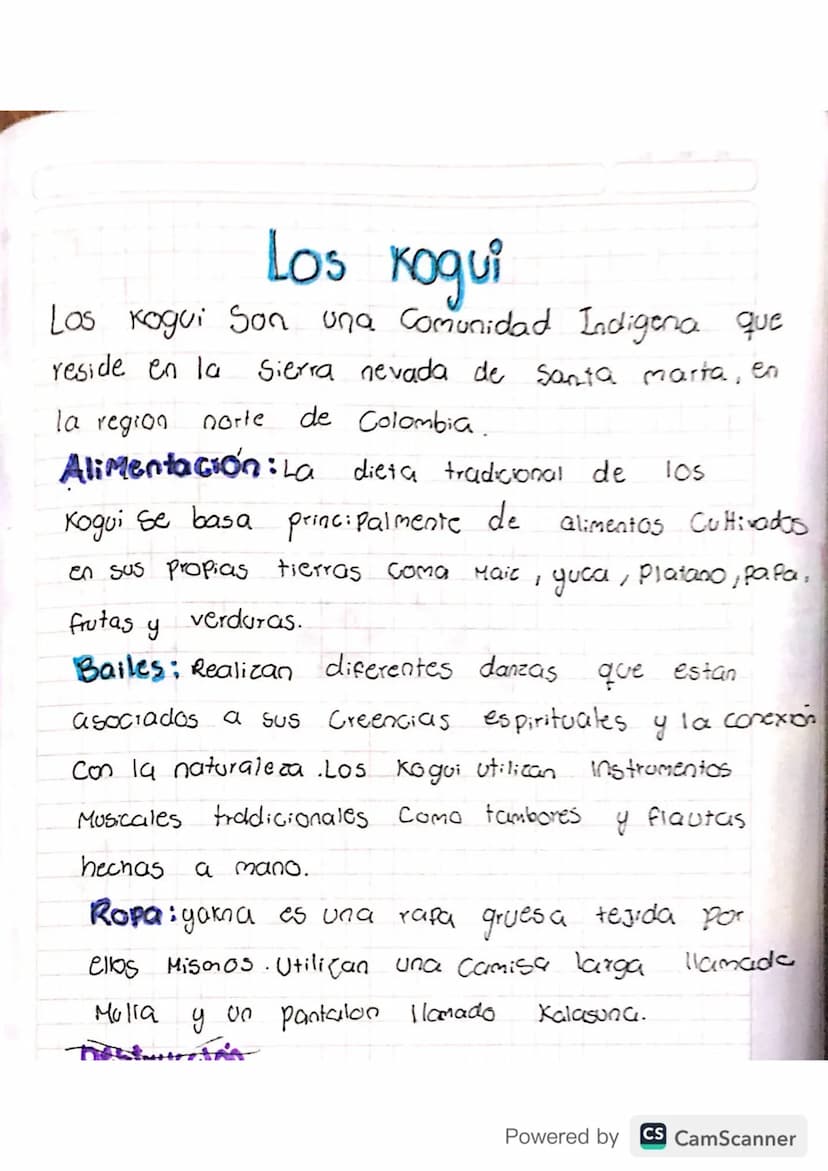 Los Kogui
Los Kogui Son una Comunidad Indigena que
reside en la Sierra nevada de Santa marta, en
la region norte de Colombia.
Alimentación: La dieta tradicional de los
Kogui se basa principalmente de alimentos Cultivados
en sus propias tierras como Maiz, yuca, Platano, papa,
frutas y verduras.
Bailes: Realizan diferentes danzas que están
asociados a sus Creencias espirituales y la conexión
Con la naturaleza. Los Kogui utilizan instrumentos
Musicales tradicionales Como tambores y flautas
hechas a mano.
Ropa: yakna es una ropa gruesa tejida por
ellos Mismos. Utilizan una Camisa larga llamada
y un pantalon llamado Kalasuna.
Powered by CS CamScanner